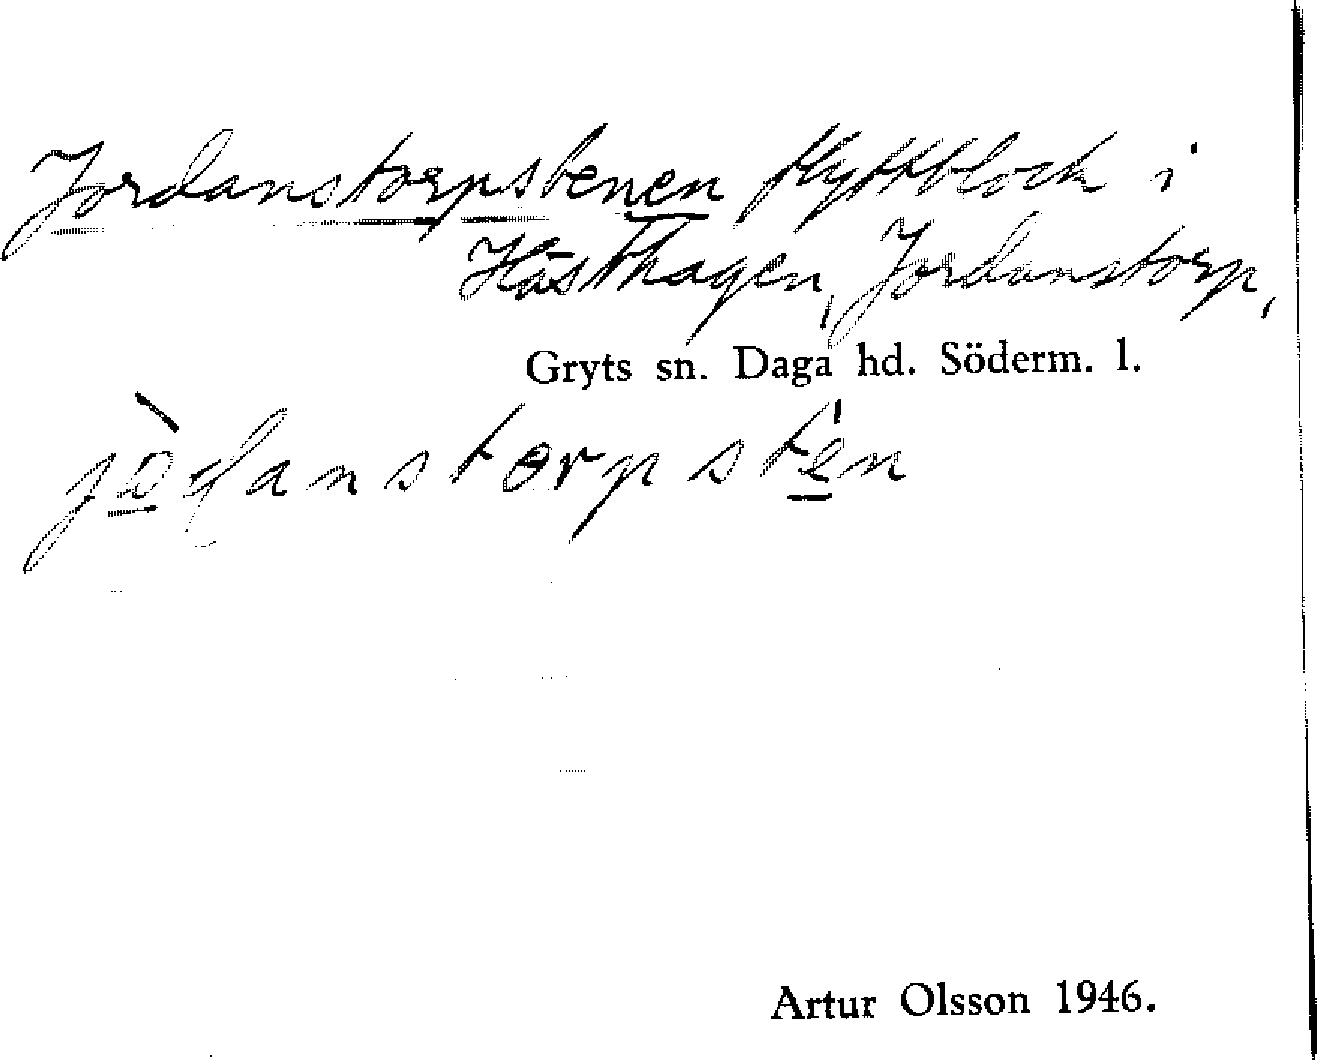 Jordanstorpstenen flyttblock i
Hästhagen, Jordanstorp,
Gryts sn. Daga hd. Söderm. l.
jò̲ḍanstorpsté̲n
Artur Olsson 1946.